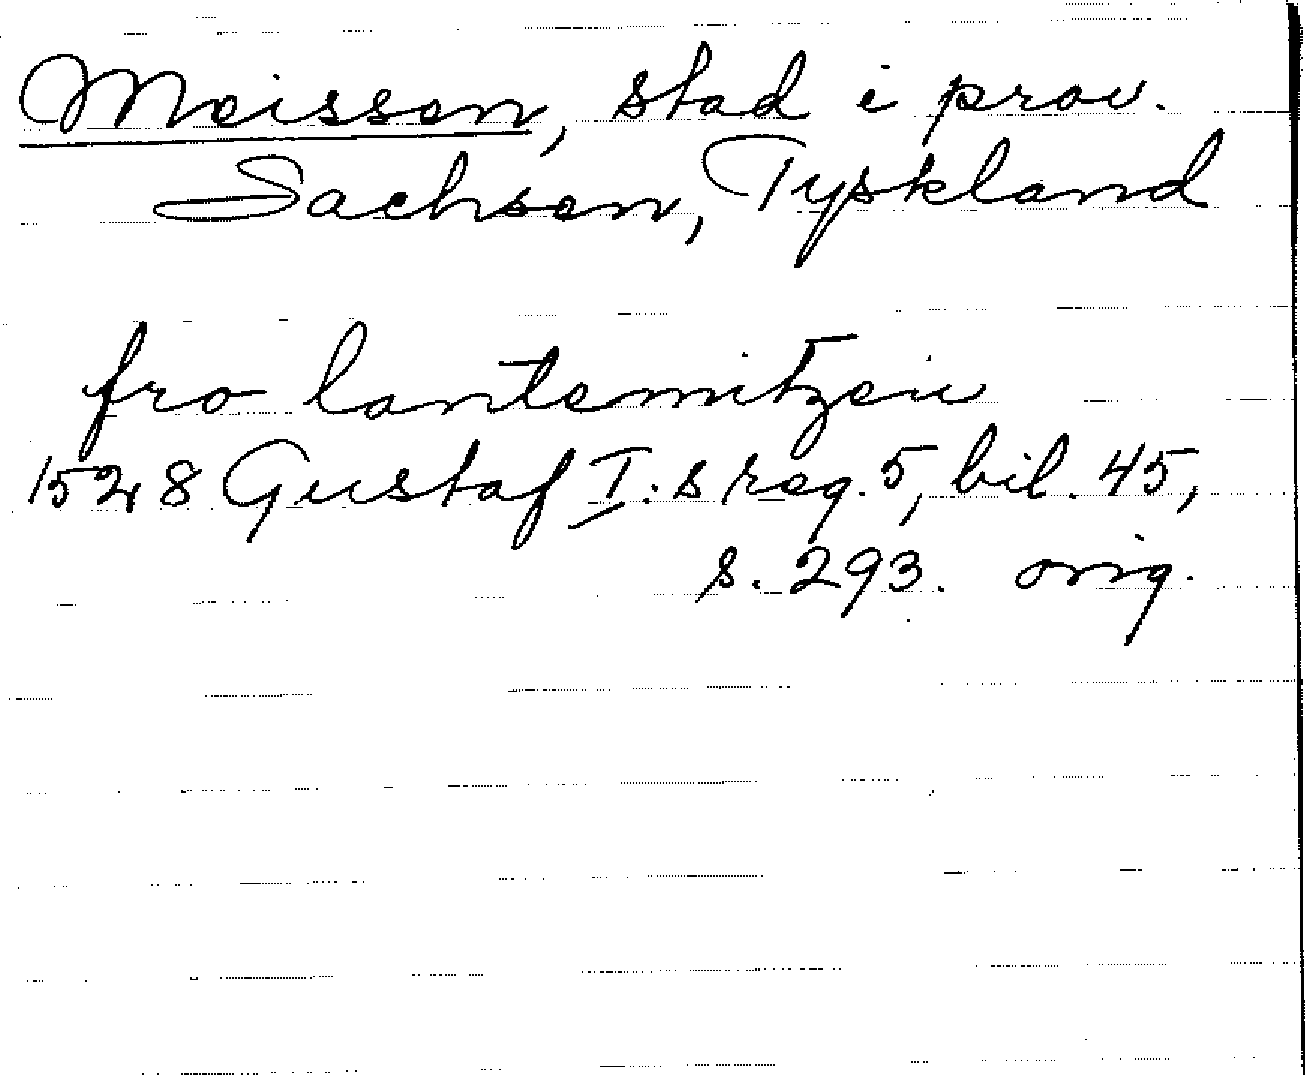 Meissen, stad i prov.
Sachsen, Tyskland
fro lantemitzen
1528 Gustaf I:s reg. 5, bil. 45,
s. 293. orig.